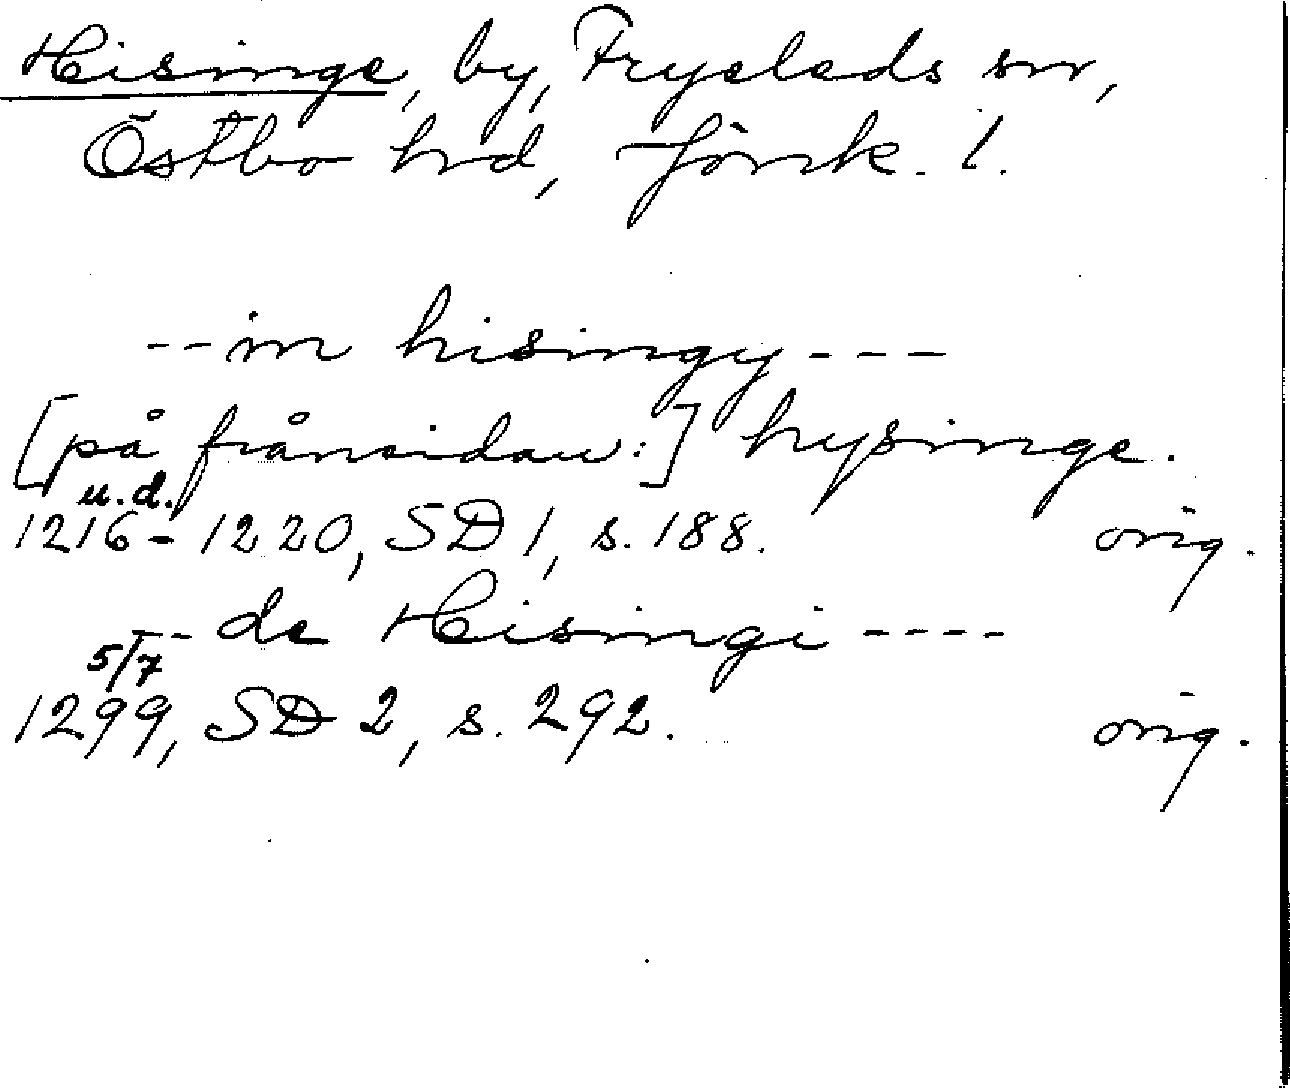 Hisinge, by, Fryeleds sn,
Östbo hrd, Jönk. l.
--in hisingy---
[på frånsidan:] hysinge.
u.d.
1216-1220, SD 1, s. 188. orig.
--de Hisingi----
5/7
1299, SD 2, s. 292. orig.